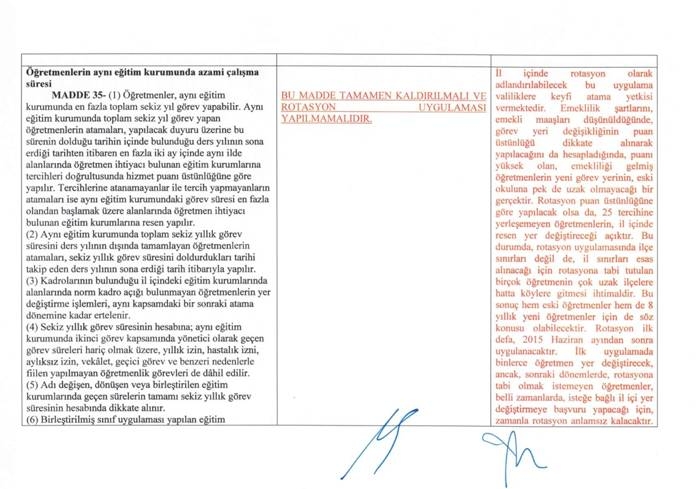 Öğretmenlerin aynı eğitim kurumunda azami çalışma
süresi
MADDE 35- (1) Öğretmenler, aynı eğitim
kurumunda en fazla toplam sekiz yıl görev yapabilir. Aynı
eğitim kurumunda toplam sekiz yıl görev yapan
öğretmenlerin atamaları, yapılacak duyuru üzerine bu
sürenin dolduğu tarihin içinde bulunduğu ders yılının sona
erdiği tarihten itibaren en fazla iki ay içinde aynı ilde
alanlarında öğretmen ihtiyacı bulunan eğitim kurumlarına
tercihleri doğrultusunda hizmet puan üstünlüğüne göre
yapılır. Tercihlerine atanamayanlar ile tercih yapmayanların
atamaları ise aynı eğitim kurumundaki görev süresi en fazla
olandan başlamak üzere alanlarında öğretmen ihtiyacı
bulunan eğitim kurumlarına resen yapılır.
(2) Aynı eğitim kurumunda toplam sekiz yıllık görev
süresini ders yılının dışında tamamlayan öğretmenlerin
atamaları, sekiz yıllık görev süresini doldurdukları tarihi
takip eden ders yılının sona erdiği tarih itibarıyla yapılır.
(3) Kadrolarının bulunduğu il içindeki eğitim kurumlarında
alanlarında norm kadro açığı bulunmayan öğretmenlerin yer
değiştirme işlemleri, aynı kapsamdaki bir sonraki atama
dönemine kadar ertelenir.
(4) Sekiz yıllık görev süresinin hesabına; aynı eğitim
kurumunda ikinci görev kapsamında yönetici olarak geçen
görev süreleri hariç olmak üzere, yıllık izin, hastalık izni,
aylıksız izin, vekâlet, geçici görev ve benzeri nedenlerle
fiilen yapılmayan öğretmenlik görevleri de dâhil edilir.
(5) Adı değişen, dönüşen veya birleştirilen eğitim
kurumlarında geçen sürelerin tamamı sekiz yıllık görev
süresinin hesabında dikkate alınır.
(6) Birleştirilmiş sınıf uygulaması yapılan eğitim
BU MADDE TAMAMEN KALDIRILMALI VE
ROTASYON UYGULAMASI
YAPILMAMALIDIR.
İl içinde rotasyon olarak
adlandırılabilecek bu uygulama
valiliklere keyfi atama yetkisi
vermektedir. Emeklilik şartlarını,
emekli maaşları düşünüldüğünde,
görev yeri değişikliğinin puan
üstünlüğü dikkate alınarak
yapılacağını da hesapladığında, puanı
yüksek olan, emekliliği gelmiş
öğretmenlerin yeni görev yerinin, eski
okuluna pek de uzak olmayacağı bir
gerçektir. Rotasyon puan üstünlüğüne
göre yapılacak olsa da, 25 tercihine
yerleşemeyen öğretmenlerin, il içinde
resen yer değiştireceği açıktır. Bu
durumda, rotasyon uygulamasında ilçe
sınırları değil de, il sınırları esas
alınacağı için rotasyona tabi tutulan
birçok öğretmenin çok uzak ilçelere
hatta köylere gitmesi ihtimaldir. Bu
sonuç hem eski öğretmenler hem de 8
yıllık yeni öğretmenler için de söz
konusu olabilecektir. Rotasyon ilk
defa, 2015 Haziran ayından sonra
uygulanacaktır. İlk uygulamada
binlerce öğretmen yer değiştirecek,
ancak, sonraki dönemlerde, rotasyona
tabi olmak istemeyen öğretmenler,
belli zamanlarda, isteğe bağlı il içi yer
değiştirmeye başvuru yapacağı için,
zamanla rotasyon anlamsız kalacaktır.